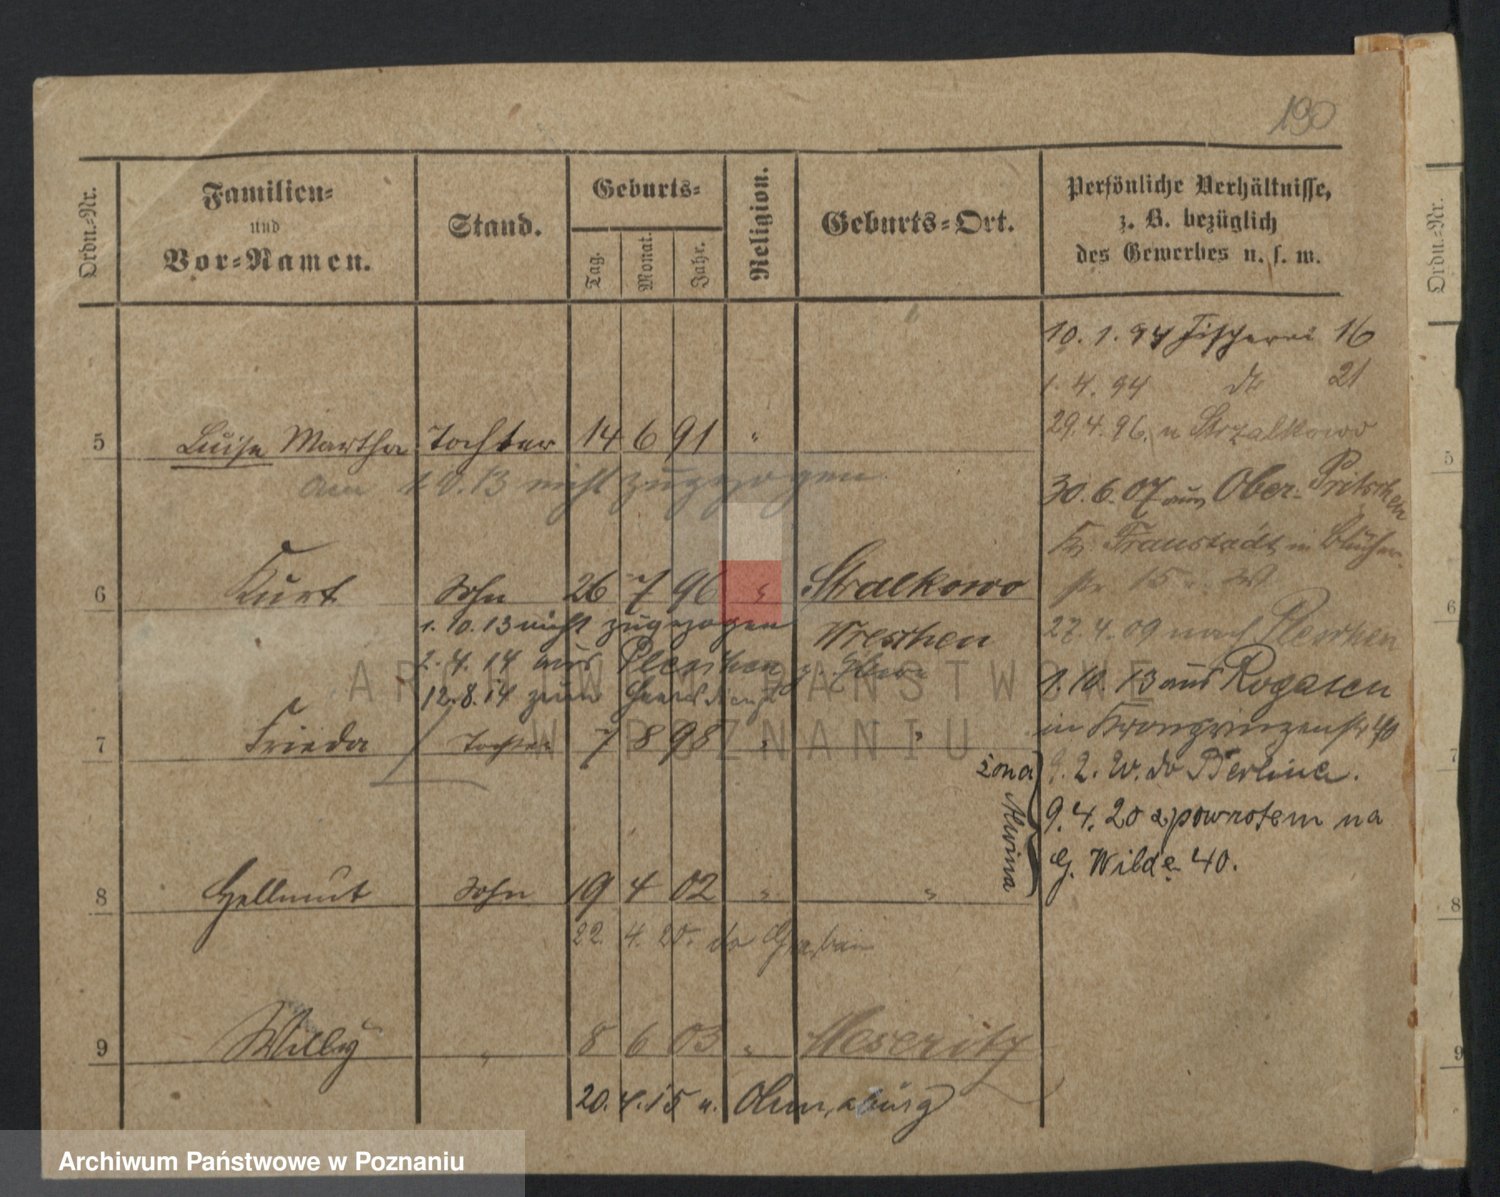 190
Ordn.-Nr.
Familien-
und
Vor-Namen.
Stand.
Geburts-
Tag.
Monat.
Jahr.
Religion.
Geburts-Ort.
Persönliche Verhältnisse,
z. B. bezüglich
des Gewerbes u. s. w.
Ordn.-Nr.
10. 1. 94 Fischerei 16
1. 4. 94 do 21
29. 4. 96. n Strzalkowo
5 Luise Martha Tochter 14 6 91 "
1. 10. 13 nicht zugezogen
30. 6. 07 aus Ober-Pritschen
Kr. Fraustadt in Blücher-
str 15
6 Kurt Sohn 26 7 96 " Stralkowo
1. 10. 13 nicht zugezogen Wreschen
27. 4. 09 nach Pleschen
2. 4. 14 aus Pleschen
12. 8. 14 zum Heeresdienst
1. 10. 13 aus Rogasen
in Kronprinzenstr 40
7 Frieda Tochter 7 8 98 " "
żona Alwina
9. 2. W. do Berlina.
9. 4. 20 z powrotem na
G. Wilde 40.
8 Hellmut Sohn 19 4 02 " "
22. 4. 20. do
9 Willy " 8 6 03 " Meseritz
20. 4. 15 n.
5
6
7
8
9
ARCHIWUM PAŃSTWOWE
W POZNANIU
Archiwum Państwowe w Poznaniu